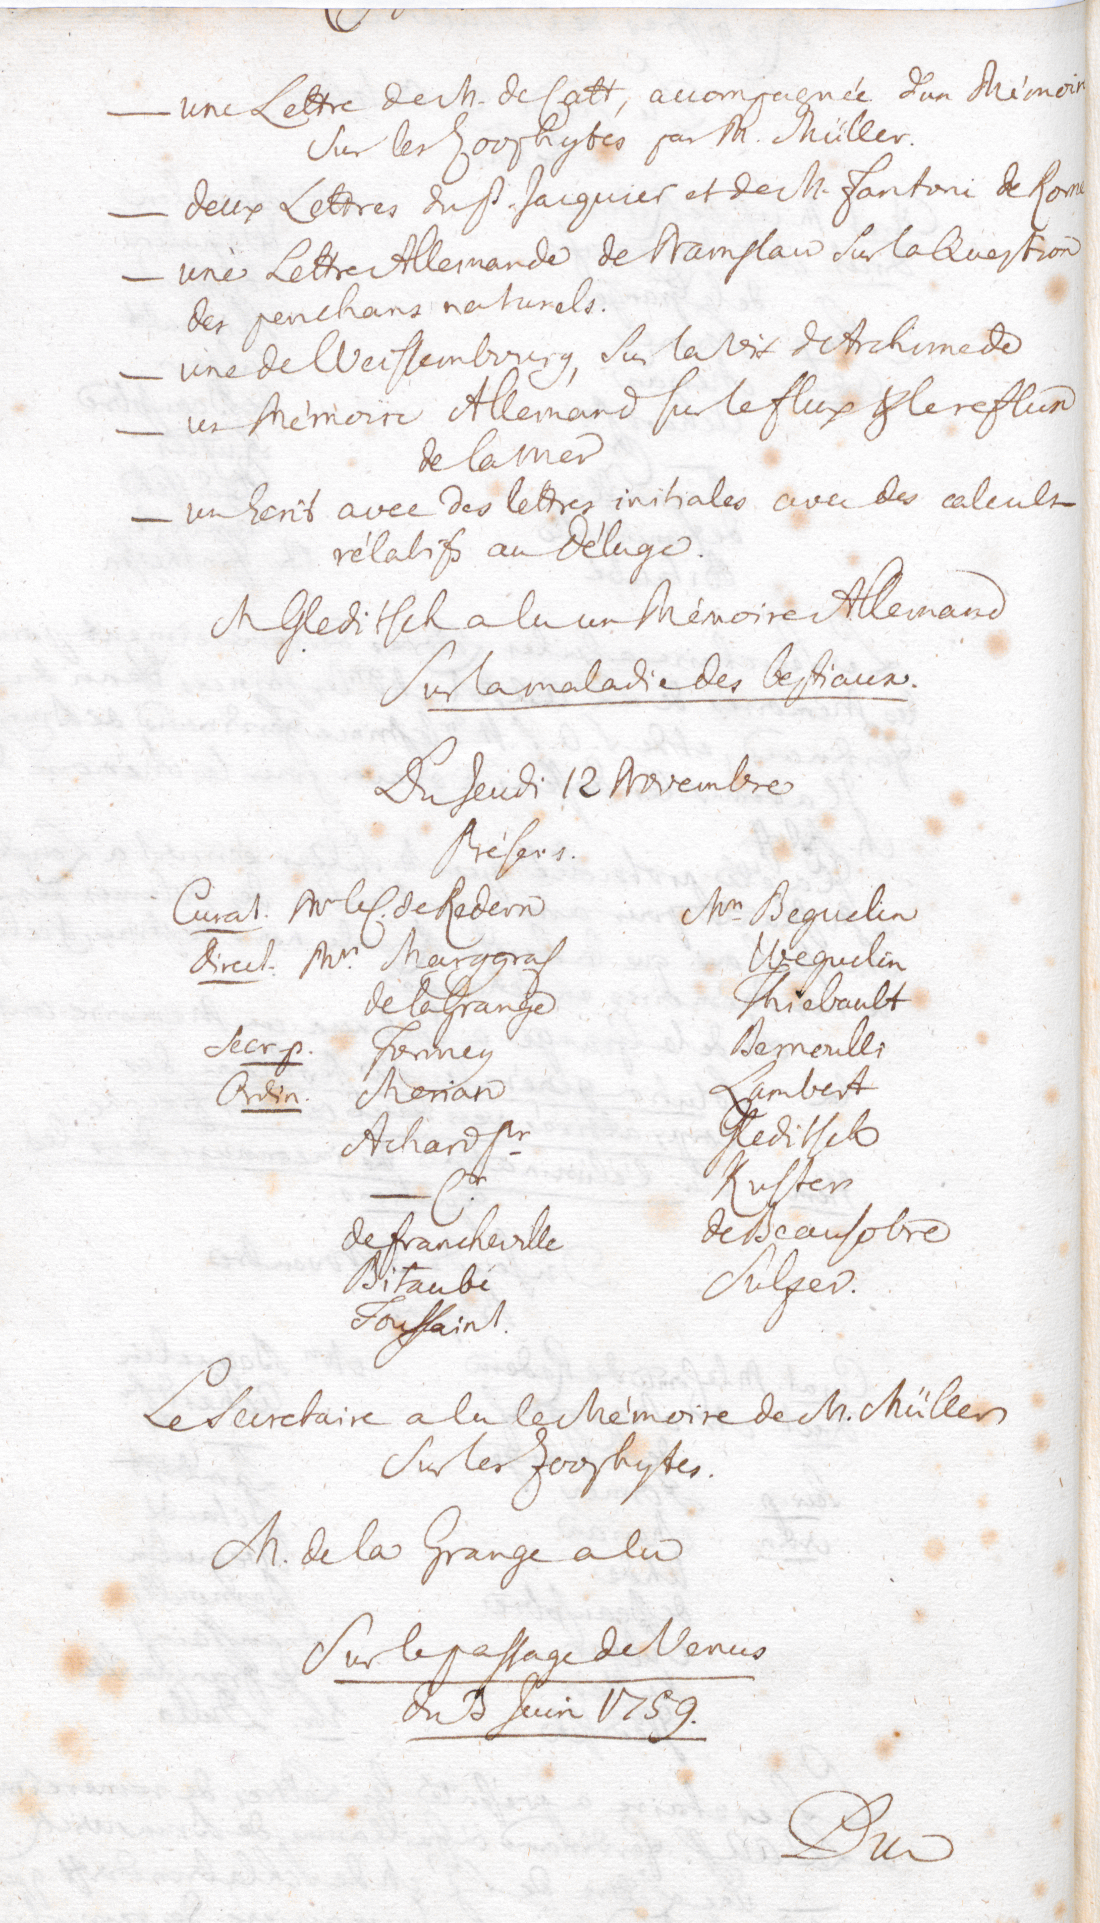 — une Lettre de M. de Catt, accompagnée d'un Mémoir
sur les Zoophytes par M. Müller.
— deux Lettres du P. Jacquier et de M. Fantoni de Rome
— une Lettre Allemande de Namslau sur la Question
des penchans naturels.
— une de Weissembourg, sur la vix d'Archimede
— un Mémoire Allemand sur le flux & le reflux
de la mer
— un Ecrit avec des lettres initiales avec des calculs
rélatifs au Déluge.
M Gleditsch a lu un Mémoire Allemand
Sur la maladie des bestiaux.
Du Jeudi 12 Novembre
Présens.
Curat. Mr le C. de Redern Mrs Beguelin
Direct. Mrs. Marggraf Weguelin
de la Grange Thiebault
Secr. p. Formey Bernoulli
Ordin. Merian Lambert
Achard Pr Gleditsch
— Cr Kuster
de Francheville de Beausobre
Bitaubé Sulzer.
Toussaint.
Le Secretaire a lu le Mémoire de M. Müller
sur les Zoophytes.
M. de la Grange a lu
Sur le passage de Venus
du 3 Juin 1769.
Du